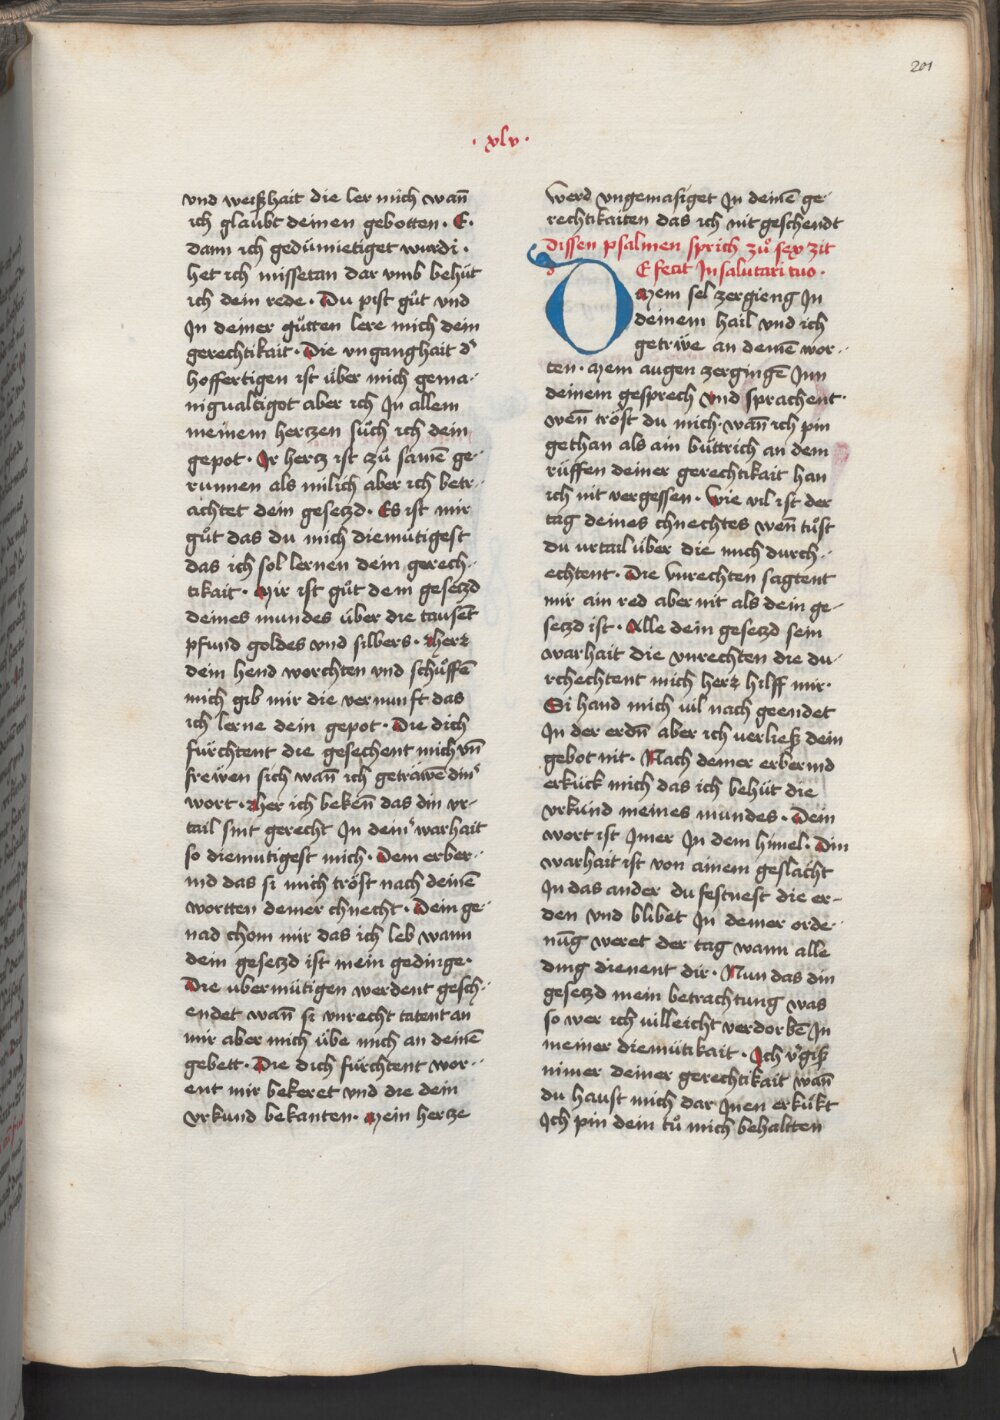 201
· xlv ·
vnd weißhait die ler mich wan̄
ich glaubt deinen gebotten · E ·
dann ich gedu̎mietiget wurdi ·
het ich missetan dar vmb behu̎t
ich dein rede · Du pist gůt vnd
In deiner gůtten lere mich dein
gerechtikait · Die vnganghait d
hoffertigen ist über mich gema-
nigualtigot aber ich In allem
meinem hertzen sůch ich dein
gepot · Ir hertz ist zů samē ge-
runnen als milich aber ich betr-
achtet dein gesetzd · Es ist mir
gůt das du mich diemütigest
das ich sol lernen dein gerech-
tikait · Mir ist gůt dem gesetzd
deines mundes über die tausēt
pfund goldes vnd silbers · Herr
dein hend worchten vnd schůffē
mich gib mir die vernunft das
ich lerne dein gepot · Die dich
fürchtent die gesechent mich vn̄
frewen sich wan̄ ich getrawē din
wort · Her ich beken̄ das din vr-
tail sint gerecht In dein warhait
so diemutigest mich · Dem erber-
md das si mich tröst nach deinē
wortten deiner chnecht · Dein ge-
nad chom mir das ich leb wann
dein gesetzd ist mein gedinge ·
Die ubermütigen werdent gesch-
endet wan̄ si vnrecht tatent an
mir aber mich übe mich an deinē
gebett · Die dich fürchtent wer-
ent mir bekeret vnd die dein
vrkund bekanten · Mein hertze
werd vngemasiget In deinē ge-
rechtikaiten das ich nit geschendt
dissen psalmen sprich zů sex zit
DE fecit In salutari tuo ·
Mein sel zergieng In
deinem hail vnd ich
getrüe an deinē wor-
ten · Mein augen zergingē Inn
deinem gesprech vnd sprachent ·
wen̄ tröst du mich · wan̄ ich pin
gethan als ain büttrich an dem
rüffen deiner gerechtikait han
ich nit vergessen · Wie vil ist der
tag deines chnechtes wen̄ tüst
du urtail über die mich durch-
echtent · Die vnrechten sagtent
mir ain red aber nit als dein ge-
setzd ist · Alle dein gesetzd sein
warhait die vnrechten die du-
rchechtent mich herr hilff mir ·
Si hand mich vil nach geendet
In der erdn̄ aber ich verließ dein
gebot nit · Nach deiner erbermd
erkück mich das ich behüt die
vrkünd meines mundes · Dein
wort ist Imer In dem himel · Din
warhait ist von ainem geslächt
In das ander du festnest die er-
den vnd blibet In deiner orde-
nūg weret der tag wann alle
ding dienent dir · Nun das din
gesetzd mein betrachtung was
so wer ich villeicht verdorbē In
meiner diemütikait · Ich v̓giß
nimer deiner gerechtikait wan̄
du haust mich dar Inen erkükt
Ich pin dein tů mich behaltten